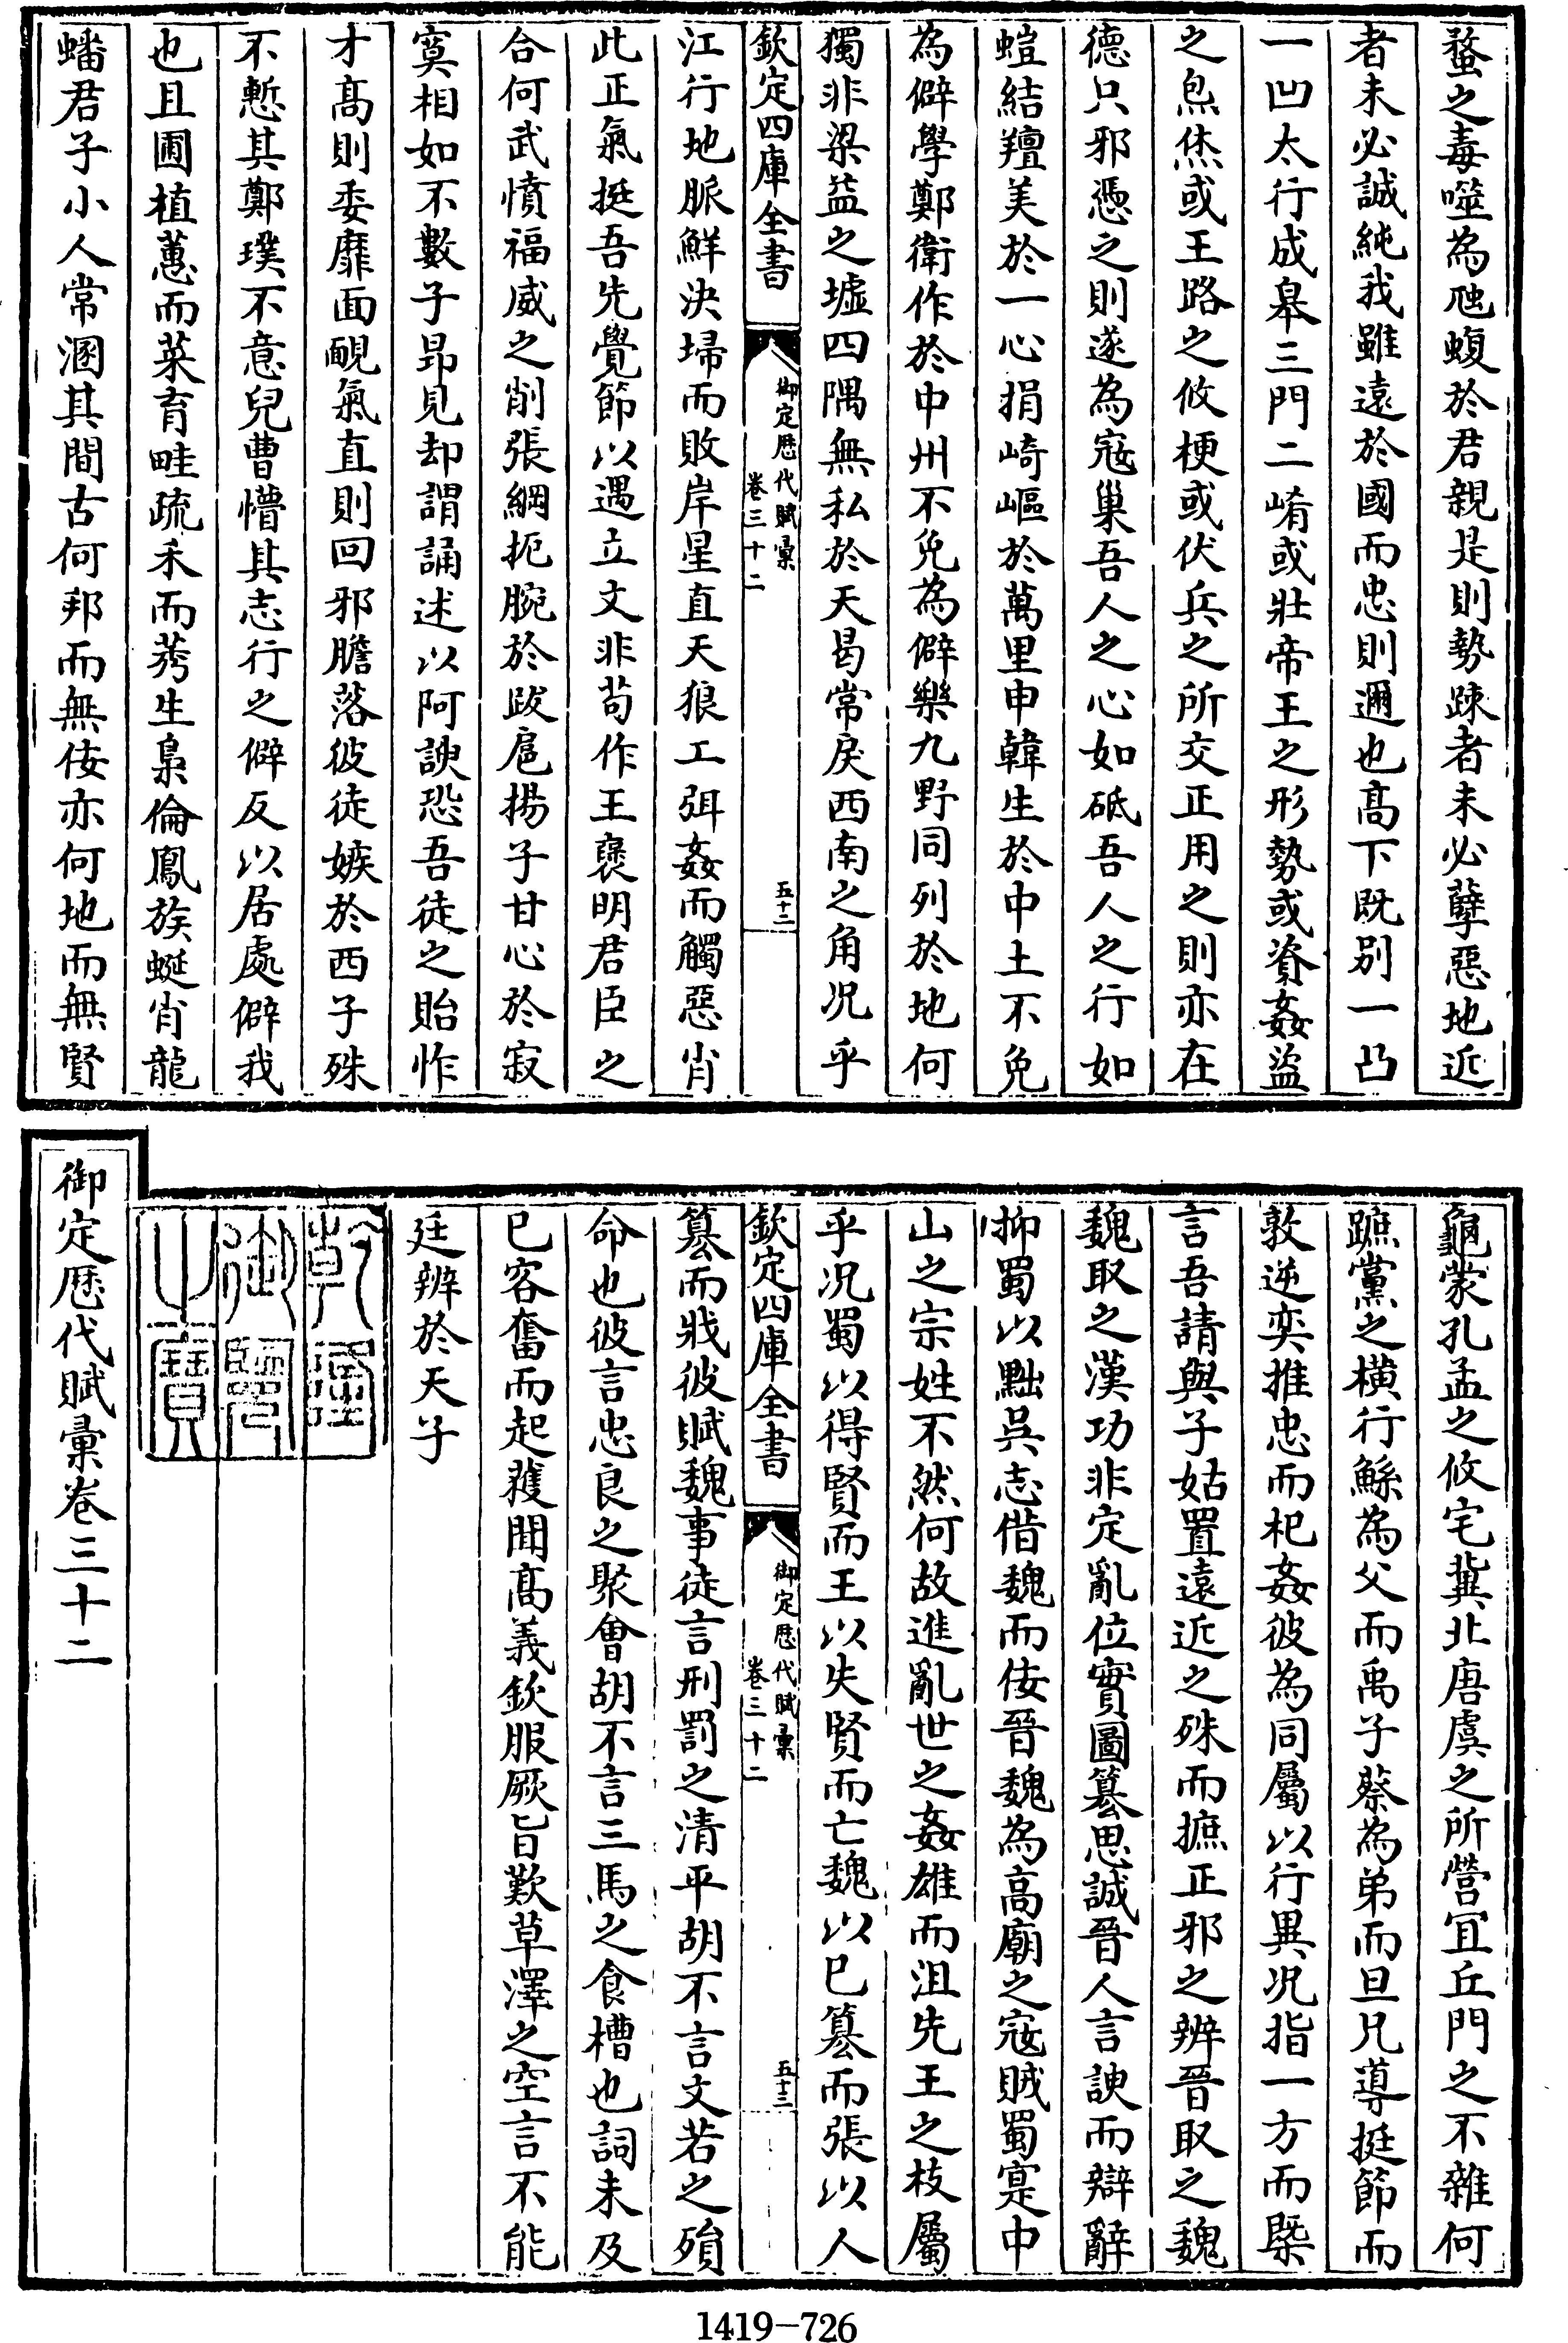 蝥之毒噬為虺蝮於君親是則勢疎者未必孽惡地近
者未必誠純我雖遠於國而忠則邇也高下既別一凸
一凹太行成皋三門二崤或壯帝王之形勢或資姦盜
之炰烋或王路之攸梗或伏兵之所交正用之則亦在
德只邪憑之則遂為寇巢吾人之心如砥吾人之行如
螘結羶美於一心捐崎嶇於萬里申韓生於中土不免
為僻學鄭衛作於中州不免為僻樂九野同列於地何
獨非梁益之墟四隅無私於天曷常戾西南之角况乎
欽定四庫全書
御定歴代賦彙
卷三十二
五十二
江行地脈鮮決埽而敗岸星直天狼工弭姦而觸惡肖
此正氣挺吾先覺節以遇立文非苟作王襃明君臣之
合何武憤福威之削張綱扼腕於跋扈揚子甘心於寂
寞相如不數子昻見却謂誦述以阿諛恐吾徒之貽怍
才高則委靡面靦氣直則回邪膽落彼徒嫉於西子殊
不慙其鄭璞不意兒曹懵其志行之僻反以居處僻我
也且圃植蕙而菜育畦疏禾而莠生梟倫鳳族蜒肖龍
蟠君子小人常溷其間古何邦而無佞亦何地而無賢
龜蒙孔孟之攸宅冀北唐虞之所營宜丘門之不雜何
蹠黨之橫行鯀為父而禹子蔡為弟而旦兄導挺節而
敦逆奕推忠而杞姦彼為同屬以行異况指一方而槩
言吾請與子姑置遠近之殊而摭正邪之辨晉取之魏
魏取之漢功非定亂位實圖簒思誠晉人言諛而辯辭
抑蜀以黜吳志偕魏而佞晉魏為高廟之寇賊蜀寔中
山之宗姓不然何故進亂世之姦雄而沮先王之枝屬
乎况蜀以得賢而王以失賢而亡魏以已簒而張以人
欽定四庫全書
御定歴代賦彙
卷三十二
五十三
簒而戕彼賦魏事徒言刑罰之清平胡不言文若之殞
命也彼言忠良之聚會胡不言三馬之食槽也詞未及
已容奮而起獲聞高義欽服厥旨歎草澤之空言不能
廷辨於天子
乾隆
御覽
之寶
御定歴代賦彙卷三十二
1419-726